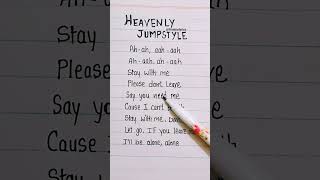 HEAVENLY
JUMPSTYLE
Ah-ah, aah-aah
Ah-aah, ah-aah
Stay with me
Please don't leave
Say you need me
Cause I can't
Stay with me,
Let go, If you
I'll be alone, alone